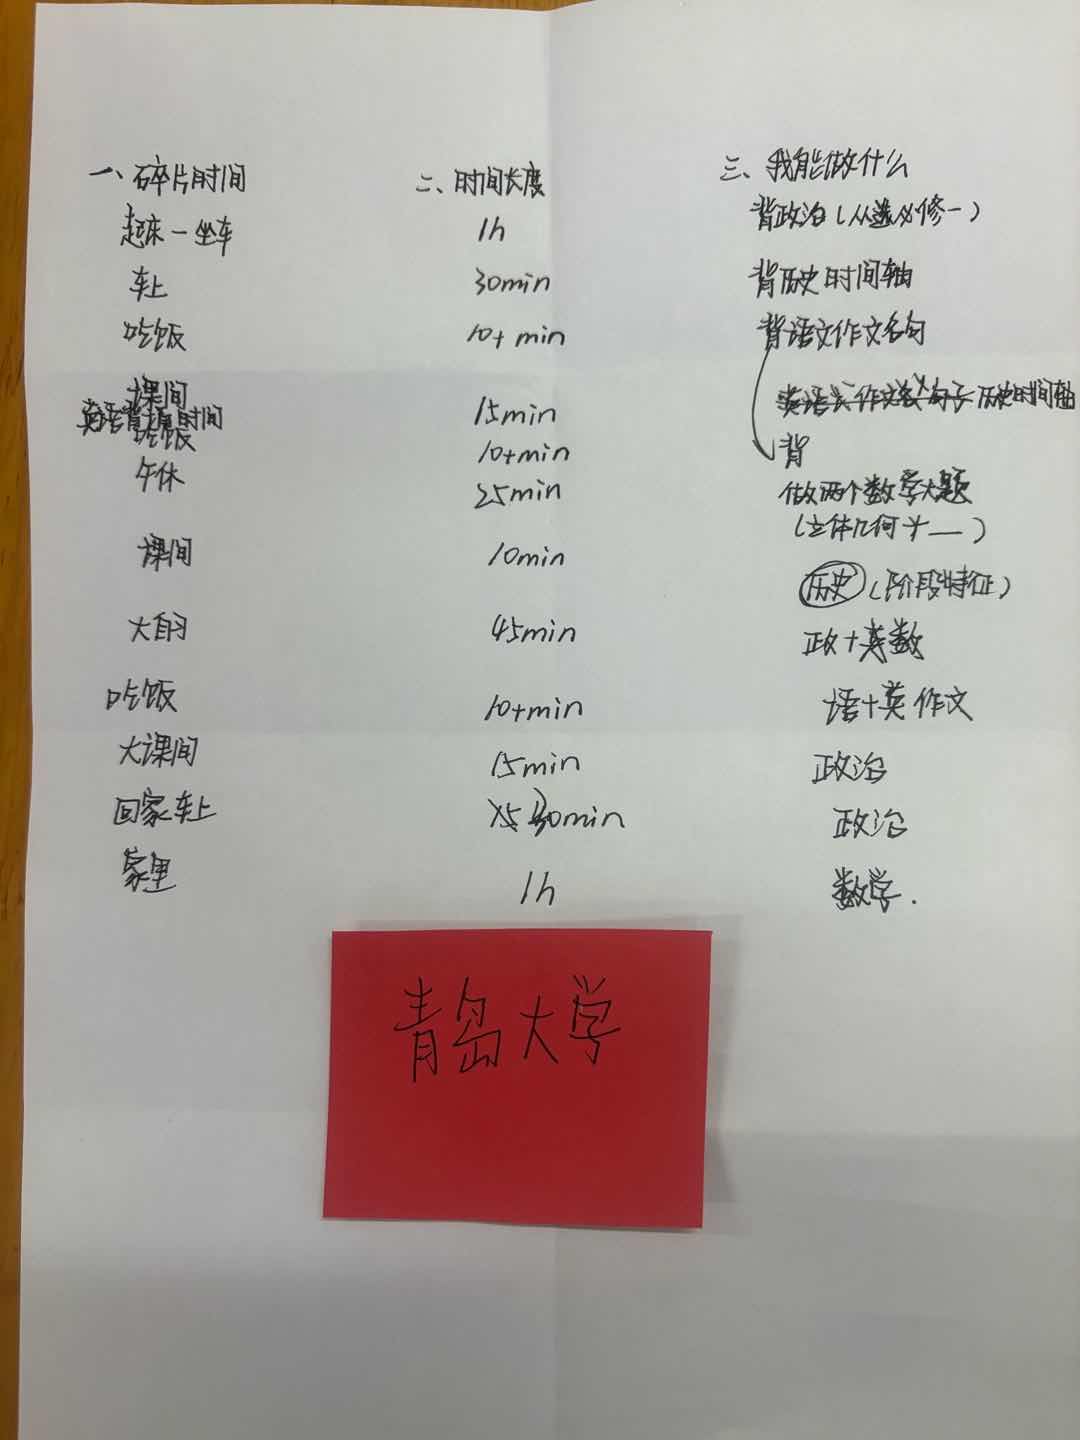 一、碎片时间 二、时间长度 三、我能做什么
起床一坐车 1h 背政治(从选必修一)
车上 30min 背历史时间轴
吃饭 10+min 背语文作文名句
课间 15min 历史时间轴
吃饭 10+min 背
午休 25min 做两个数学大题
(立体几何+__)
课间 10min 历史(阶段特征)
大自习 45min 政+英数
吃饭 10+min 语+英作文
大课间 15min 政治
回家车上 30min 政治
家里 1h 数学.
青岛大学